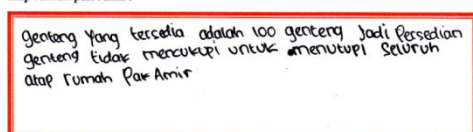 genteng Yang tersedia adalah 100 genteng Jadi Persedian
genteng tidak mencukupi untuk menutupi Seluruh
atap rumah Pak Amir